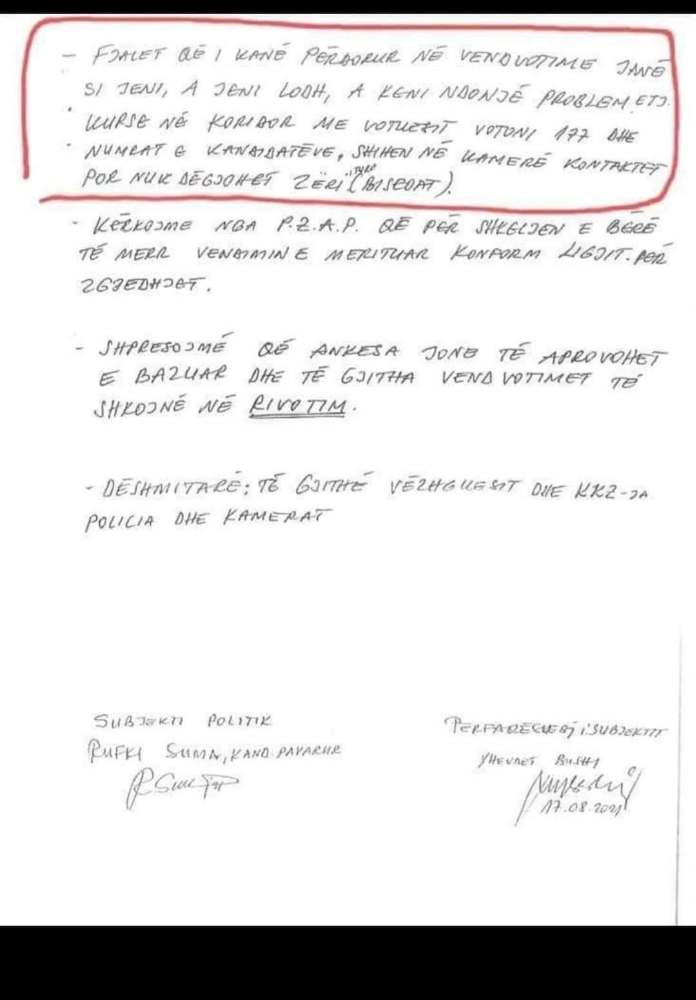 - FJALET QË I KANË PËRDORUR NË VENDVOTIME JANË
SI JENI, A JENI LODH, A KENI NDONJË PROBLEM ETJ.
KURSE NË KORIDOR ME VOTUESIT VOTONI 177 DHE
NUMRAT E KANDIDATËVE, SHIHEN NË KAMERË KONTAKTET
POR NUK DËGJOHET ZËRI (BISEDAT).
- KËRKOJME NGA P.Z.A.P. QË PËR SHKELJEN E BËRË
TË MERR VENDIMIN E MERITUAR KONFORM LIGJIT PËR
ZGJEDHJET.
- SHPRESOJMË QË ANKESA JONË TË APROVOHET
E BAZUAR DHE TË GJITHA VENDVOTIMET TË
SHKOJNË NË RIVOTIM.
- DËSHMITARË: TË GJITHË VËZHGUESIT DHE KKZ-JA
POLICIA DHE KAMERAT
SUBJEKTI POLITIK
RUFKI SUMA, KAND. PAVARUR
PERFAQESUESI I SUBJEKTIT
BUSHI
17.08.2021